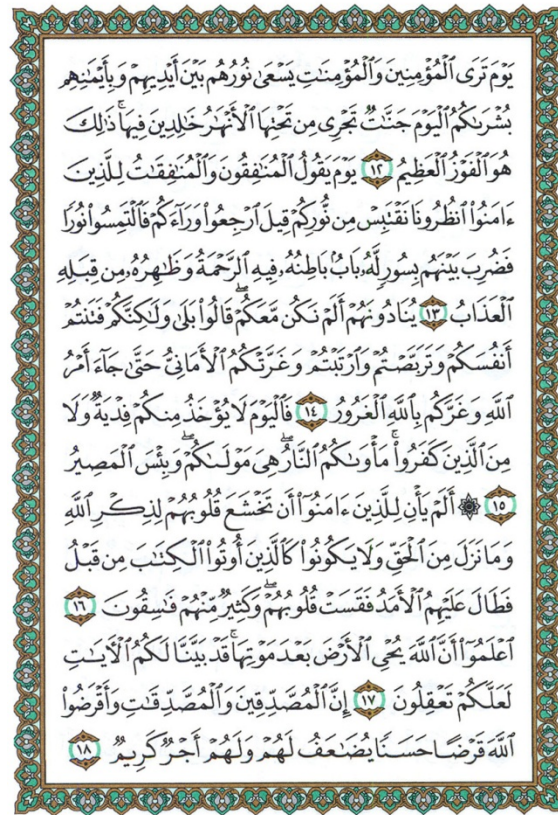 يَوْمَ تَرَى ٱلْمُؤْمِنِينَ وَٱلْمُؤْمِنَٰتِ يَسْعَىٰ نُورُهُم بَيْنَ أَيْدِيهِمْ وَبِأَيْمَٰنِهِم
بُشْرَىٰكُمُ ٱلْيَوْمَ جَنَّٰتٌ تَجْرِى مِن تَحْتِهَا ٱلْأَنْهَٰرُ خَٰلِدِينَ فِيهَا ۚ ذَٰلِكَ
هُوَ ٱلْفَوْزُ ٱلْعَظِيمُ ١٢ يَوْمَ يَقُولُ ٱلْمُنَٰفِقُونَ وَٱلْمُنَٰفِقَٰتُ لِلَّذِينَ
ءَامَنُوا۟ ٱنظُرُونَا نَقْتَبِسْ مِن نُّورِكُمْ قِيلَ ٱرْجِعُوا۟ وَرَآءَكُمْ فَٱلْتَمِسُوا۟ نُورًا
فَضُرِبَ بَيْنَهُم بِسُورٍ لَّهُۥ بَابٌۢ بَاطِنُهُۥ فِيهِ ٱلرَّحْمَةُ وَظَٰهِرُهُۥ مِن قِبَلِهِ
ٱلْعَذَابُ ١٣ يُنَادُونَهُمْ أَلَمْ نَكُن مَّعَكُمْ ۖ قَالُوا۟ بَلَىٰ وَلَٰكِنَّكُمْ فَتَنتُمْ
أَنفُسَكُمْ وَتَرَبَّصْتُمْ وَٱرْتَبْتُمْ وَغَرَّتْكُمُ ٱلْأَمَانِىُّ حَتَّىٰ جَآءَ أَمْرُ
ٱللَّهِ وَغَرَّكُم بِٱللَّهِ ٱلْغَرُورُ ١٤ فَٱلْيَوْمَ لَا يُؤْخَذُ مِنكُمْ فِدْيَةٌ وَلَا
مِنَ ٱلَّذِينَ كَفَرُوا۟ ۚ مَأْوَىٰكُمُ ٱلنَّارُ ۖ هِىَ مَوْلَىٰكُمْ ۖ وَبِئْسَ ٱلْمَصِيرُ
١٥ ۞ أَلَمْ يَأْنِ لِلَّذِينَ ءَامَنُوٓا۟ أَن تَخْشَعَ قُلُوبُهُمْ لِذِكْرِ ٱللَّهِ
وَمَا نَزَلَ مِنَ ٱلْحَقِّ وَلَا يَكُونُوا۟ كَٱلَّذِينَ أُوتُوا۟ ٱلْكِتَٰبَ مِن قَبْلُ
فَطَالَ عَلَيْهِمُ ٱلْأَمَدُ فَقَسَتْ قُلُوبُهُمْ ۖ وَكَثِيرٌ مِّنْهُمْ فَٰسِقُونَ ١٦
ٱعْلَمُوٓا۟ أَنَّ ٱللَّهَ يُحْىِ ٱلْأَرْضَ بَعْدَ مَوْتِهَا ۚ قَدْ بَيَّنَّا لَكُمُ ٱلْءَايَٰتِ
لَعَلَّكُمْ تَعْقِلُونَ ١٧ إِنَّ ٱلْمُصَّدِّقِينَ وَٱلْمُصَّدِّقَٰتِ وَأَقْرَضُوا۟
ٱللَّهَ قَرْضًا حَسَنًا يُضَٰعَفُ لَهُمْ وَلَهُمْ أَجْرٌ كَرِيمٌ ١٨